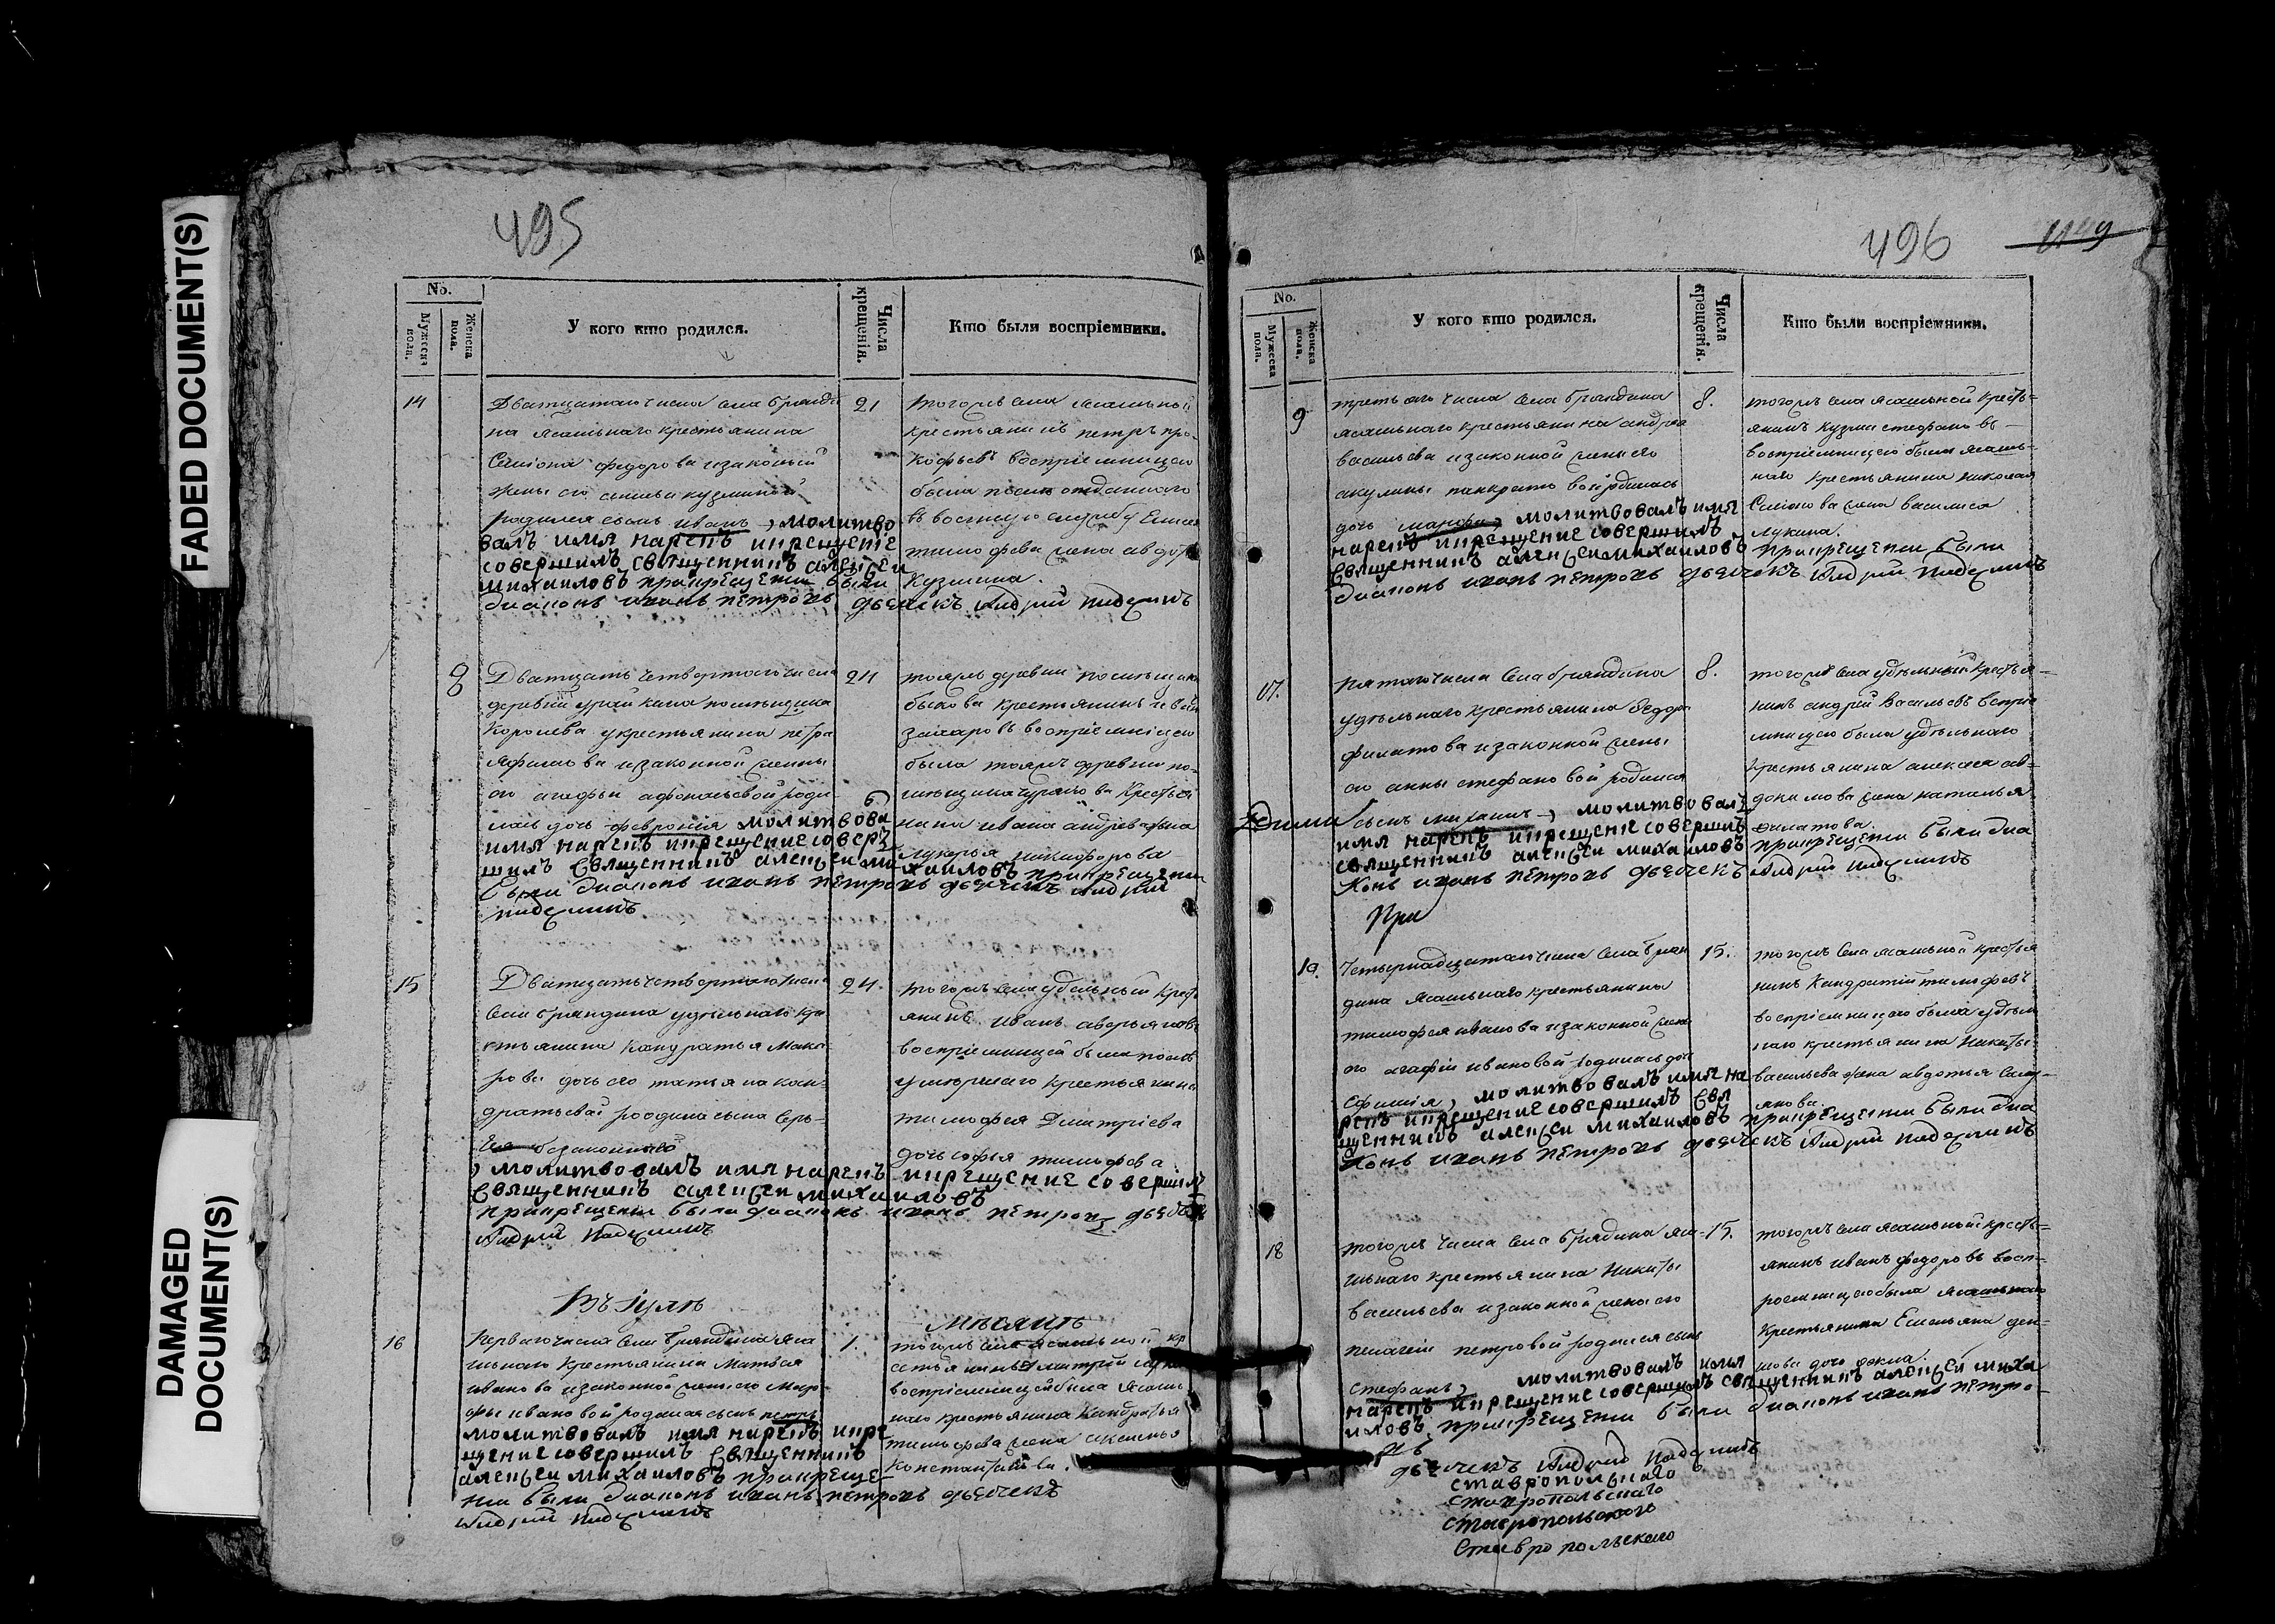 FADED DOCUMENT(S)
DAMAGED
DOCUMENT(S)
495
No.
Мужеска пола.
Женска пола.
У кого кто родился.
Числа крещенія.
Кто были воспріемники.
14
Дватцатаго числа села бряндї
на ясашнаго крестьянина
Семіона федорова изаконный
жены его кузминой
родился сынъ иванъ, молитво
валъ имя нарекъ икрещение
совершилъ священникъ алексеи
михаиловъ прикрещении были
диаконъ иванъ петровъ дьячекъ Андрей
21
тогожъ села ясашной
крестьянинъ петръ про-
кофьевъ воспріемницею
была
въ военную службу
тимофева жена авдотья
Кузмина.
8
Дватцать четвертаго числа
деревни помещика
Королева укрестьянина петра
изаконной жены
его агафьи роди
лась дочь феврония молитвова
имя нарекъ икрещение совер
шилъ священникъ алексеи михаиловъ прикрещении
были диаконъ иванъ петровъ дьячекъ Андрей
24
тояжъ деревни помещика
быкова крестьянинъ
захаровъ воспріемницею
была тояжъ деревни по-
мещика крестья
нина ивана андреева жена
лукерья никифорова
15
Дватцать четвертаго числа
села бряндина удельнаго кре
стьянина Кандратья Мака-
рова дочь его татьяна кан-
дратьева родила сына Сер-
гея безаконного
, молитвовалъ имя нарекъ икрещение совершилъ
священникъ алексеи михаиловъ
прикрещении были диаконъ иванъ петровъ дьячекъ
Андрей
24.
тогожъ села удельный крест
янинъ иванъ аверьяновъ
воспріемницей была
умершаго крестьянина
тимофея Дмитріева
дочь софья тимофева
Въ Іуле
Месяце
16
Перваго числа села бряндина яса
шнаго крестьянина Матвея
иванова изаконной жены его Мар-
фы ивановой родился сынъ петръ
молитвовалъ имя нарекъ икре
щение совершилъ священникъ
алексеи михаиловъ прикреще-
нии были диаконъ иванъ петровъ дьячекъ
Андрей
1.
тогожъ села ясашной кр
стьянинъ дмитрий
воспріемницей была ясаш
наго крестьянина Кандратья
тимофева жена аксинья
Константинова.
496
1149
No.
Мужеска пола.
Женска пола.
У кого кто родился.
Числа крещенія.
Кто были воспріемники.
9
третьяго числа села бряндина
ясашнаго крестьянина андрея
васильева изаконной жены его
акулины панкратовой родилась
дочь марфа, молитвовалъ имя
нарекъ икрещение совершилъ
священникъ алексеи михаиловъ прикрещении были
диаконъ иванъ петровъ дьячекъ Андрей
8.
тогожъ села ясашной кресть=
янинъ кузма стефановъ
воспріемницею была ясаш-
наго крестьянина николая
Семіонова жена василиса
лукина.
17.
пятаго числа села бряндина
удельнаго крестьянина федора
филатова изаконной жены
его анны стефановой родился
сынъ молитвовалъ
имя нарекъ икрещение совершилъ
священникъ алексеи михаиловъ прикрещении были диа
конъ иванъ петровъ дьячекъ Андрей
При
8.
тогожъ села удельный крестья-
нинъ андрей Васильевъ воспріе
мницею была удельнаго
крестьянина алексея ав-
докимова жена наталья
филатова.
10.
Четырнадцатаго числа села брян
дина ясашнаго крестьянина
тимофея иванова изаконной жены
его агафии ивановой родилась дочь
Ефимія, молитвовалъ имя на
рекъ икрещение совершилъ свя
щенникъ алексеи михаиловъ прикрещении были диа
конъ иванъ петровъ дьячекъ Андрей
15.
тогожъ села ясашной крестья
нинъ Кандратий тимофевъ
воспріемницею была удель
наго крестьянина Никиты
васильева жена авдотья
18
тогожъ числа села бряндина яса-
шнаго крестьянина Никиты
васильева изаконной жены его
пелагеи петровой родился сынъ
Стефанъ, молитвовалъ имя
нарекъ икрещение совершилъ священникъ алексеи миха
иловъ прикрещении были диаконъ иванъ петро-
въ
дьячекъ Андрей
15.
тогожъ села ясашной кресть=
янинъ иванъ федоровъ восп-
ріемницею была ясашнаго
крестьянина Емельяна
дочь фекла.
Ставропольскаго
Ставропольскаго
Ставропольского
Ставропольскаго